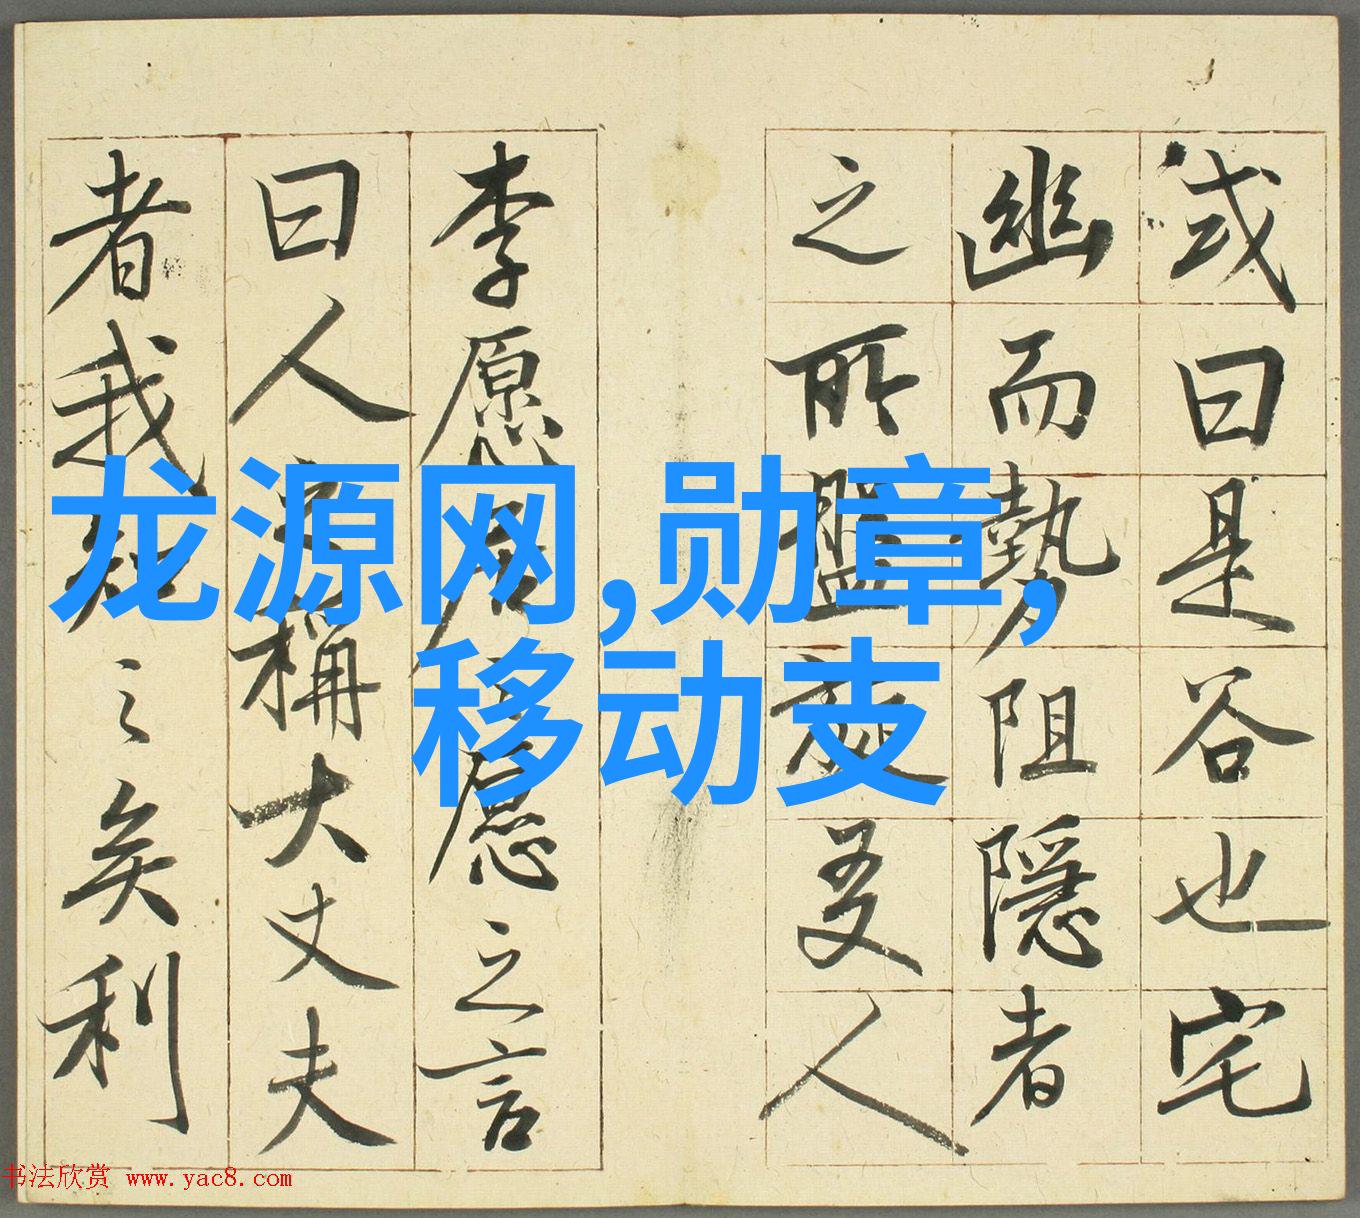 或曰是谷也宅
幽而勢阻隱者
之所盤旋友人
李愿居之愿之言
曰人之稱大丈夫
者我知之矣利
龙源网,勋章,
移动支
书法欣赏 www.yac8.com